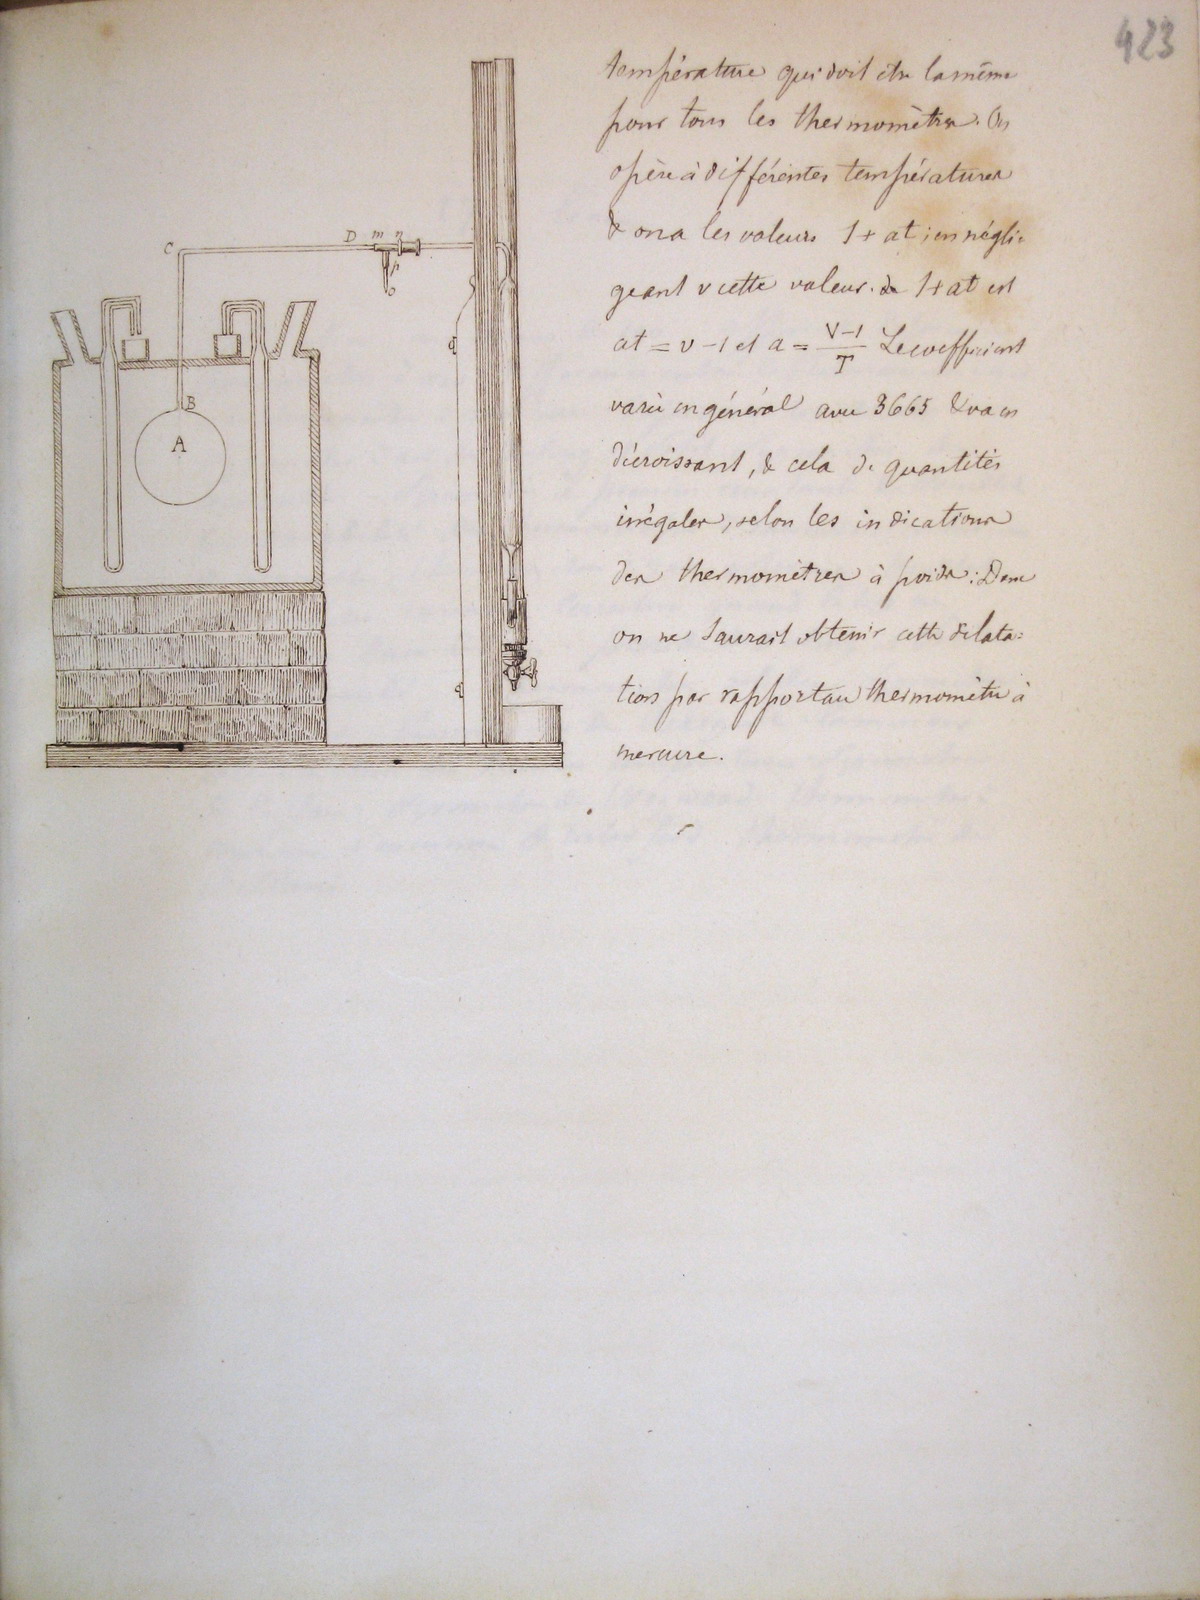 423
température qui doit être la même
pour tous les thermomètres. On
opère à différentes températures
& on a les valeurs 1 + at ; en négli-
geant v cette valeur de 1 + at est
at = v - 1 et a = V-1/T Le coefficient
varie en général avec 3665 & va en
décroissant, & cela de quantités
inégales, selon les indications
des thermomètres à poids : Donc
on ne saurait obtenir cette dilata=
tion par rapport au thermomètre à
mercure.
D m n
C
p
B
A